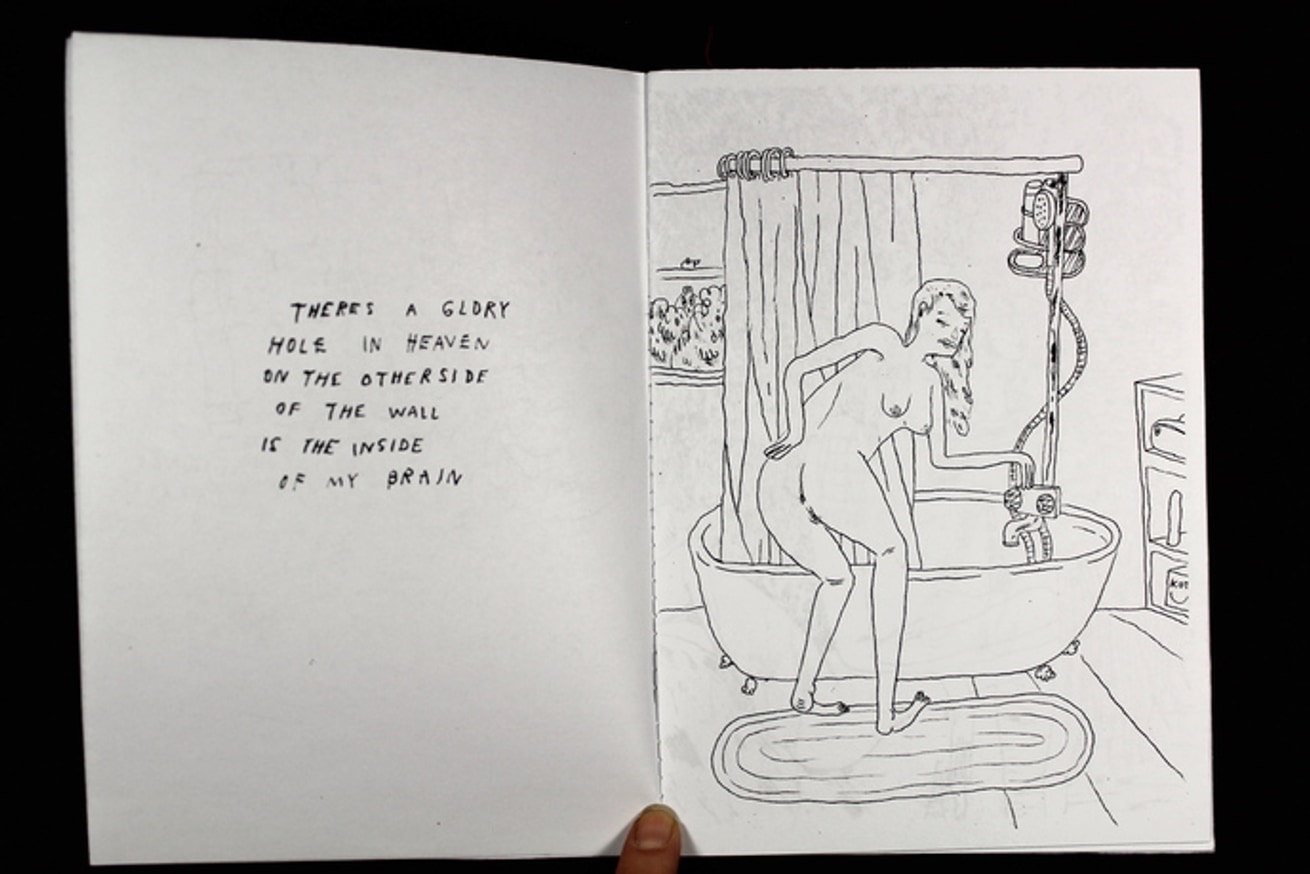 THERES A GLORY
HOLE IN HEAVEN
ON THE OTHERSIDE
OF THE WALL
IS THE INSIDE
OF MY BRAIN